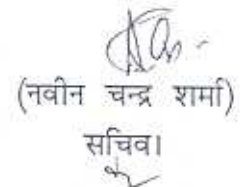 (नवीन चन्द्र शर्मा)
सचिव।